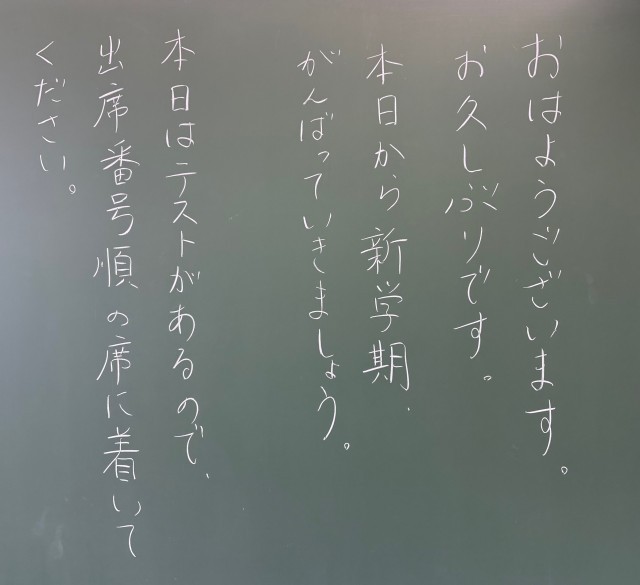 おはようございます。
お久しぶりです。
本日から新学期.
がんばっていきましょう。
本日はテストがあるので、
出席番号順の席に着いて
ください。